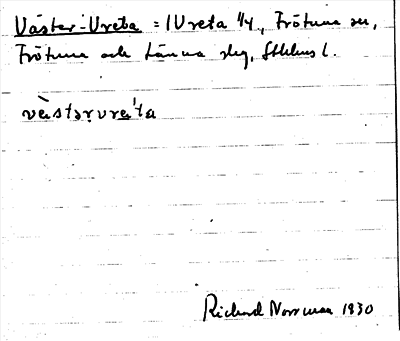 Väster-Vreta = 1 Vreta 1/4, Frötuna sn,
Frötuna och Länna skg, Sthlms l.
vèstərvre´ta
Richard Norrman 1930